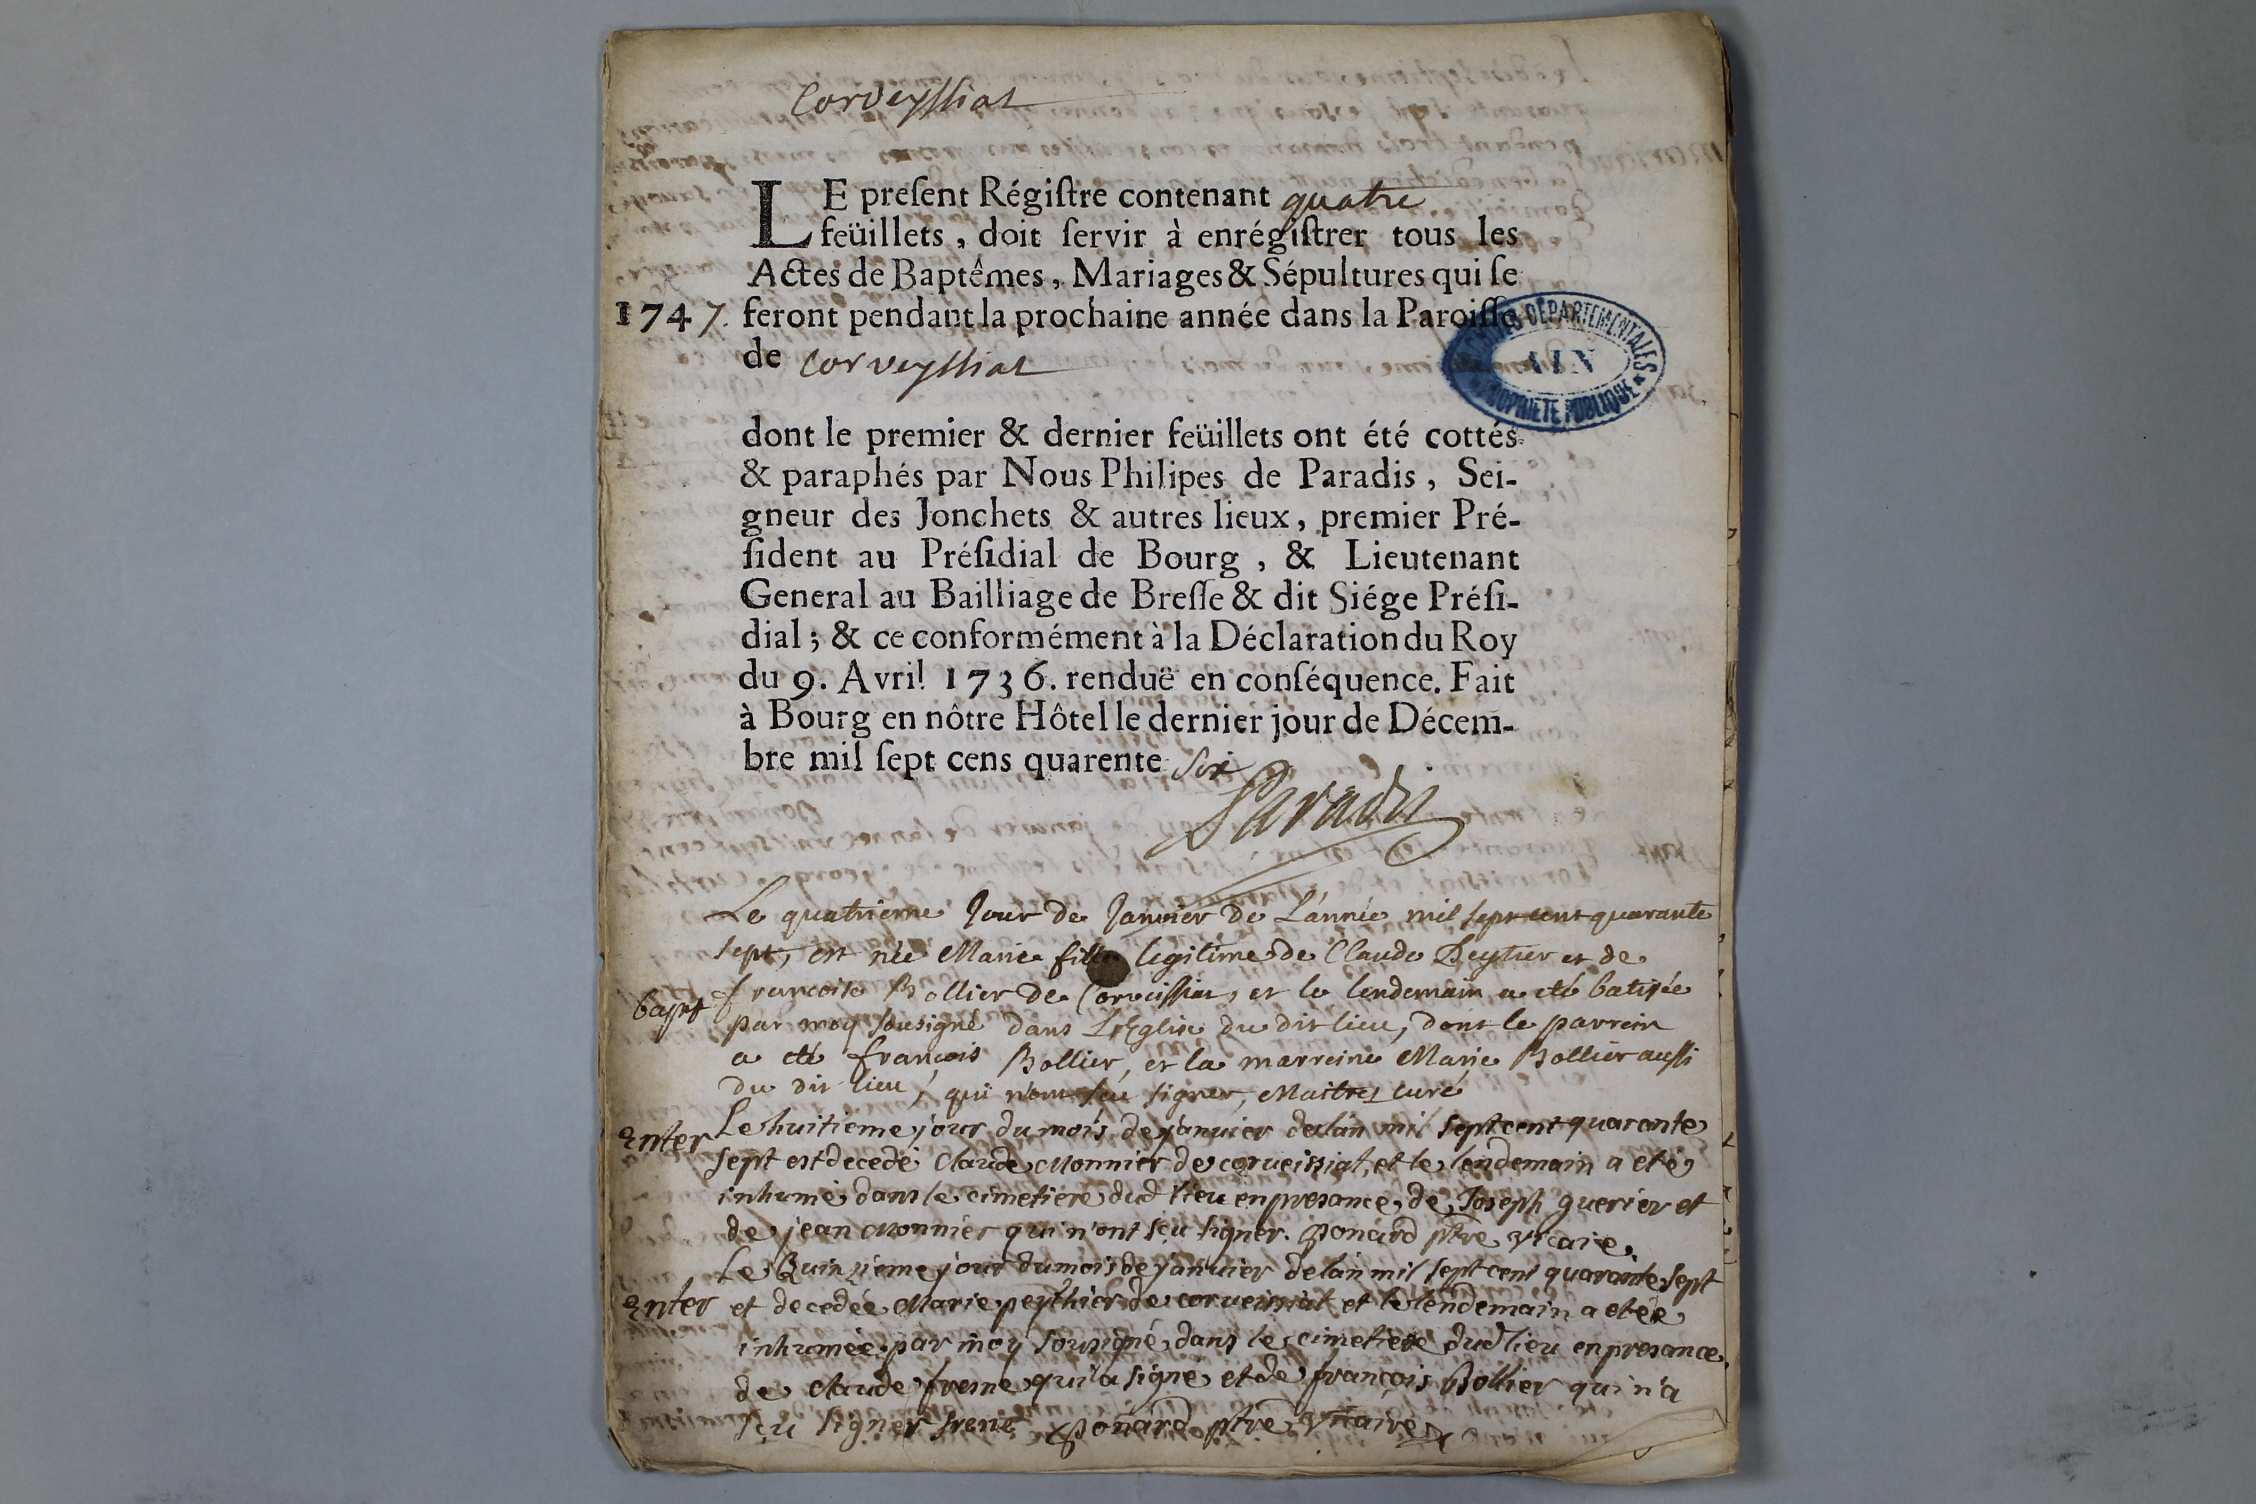 Corveyssiat
LE preſent Régiſtre contenant quatre
feüillets, doit ſervir à enrégiſtrer tous les
Actes de Baptêmes, Mariages & Sépultures qui ſe
1747. feront pendant la prochaine année dans la Paroiſſe
de Corveyssiat
ARCHIVES DÉPARTEMENTALES
AIN
PROPRIÉTÉ PUBLIQUE
dont le premier & dernier feüillets ont été cottés
& paraphés par Nous Philipes de Paradis, Sei-
gneur des Jonchets & autres lieux, premier Pré-
ſident au Préſidial de Bourg, & Lieutenant
General au Bailliage de Breſſe & dit Siége Préſi-
dial; & ce conformément à la Déclaration du Roy
du 9. Avril 1736. renduë en conſéquence. Fait
à Bourg en nôtre Hôtel le dernier jour de Décem-
bre mil ſept cens quarente six
Paradis
Le quatrieme Jour de Janvier de L'année mil sept cent quarante
sept, est née Marie fille legitime de Claude Peytier et de
bapt francoise Bollier de Corveissiat, et le lendemain a été batisée
par moy sousigné dans L'Eglise du dit lieu, dont le parrein
a été françois Bollier, et la marreine Marie Bollier aussi
du dit lieu, qui n'ont sçu signer, Maitre curé
Enter Le huitieme jour du mois de janvier de lan mil sept cent quarante
sept est decedé Claude Monnier de corveissiat, et le lendemain a eté
inhumé dans le cimetiere dud lieu en presance de Joseph guerier et
de jean Monnier qui n'ont sçu signer. Ponard ptre vicaire.
Le Quinzieme jour du mois de janvier de lan mil sept cent quarante sept
Enter et decedée Marie peythier de corveissiat et le lendemain a etée
inhumée par moy sousigné dans le cimetiere dud lieu en presance
de claude frene qui a signé et de françois Bollier qui n'a
sçu signer frene Ponard ptre vicaire